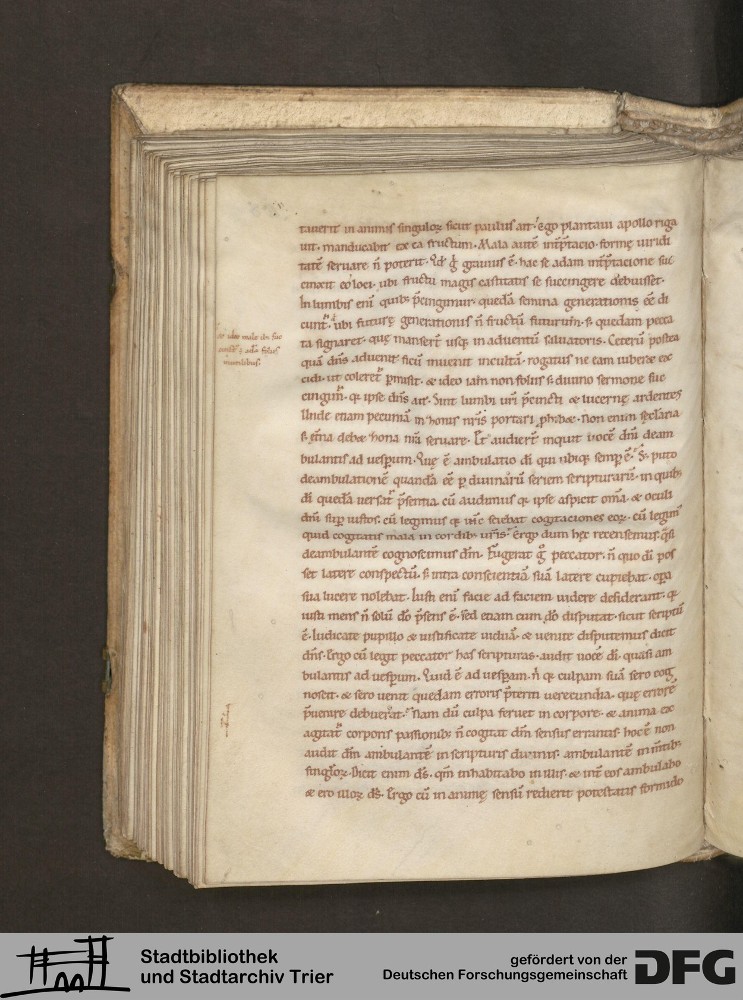 tauerit in animis singuloꝝ sicut paulus ait. Ego plantaui apollo riga
uit. manducabit ex ea fructum. Mala autē int̄p̄tacio. formę uiridi
tatē seruare n̄ poterit. Qđ g̊ grauius ē. hac se adam int̄p̄tacione suc
cinxit eo loci. ubi fructu magis castitatis se succingere debuisset.
In lumbis eni quib; p̄cingimur. quedā semina generationis eē di
cunt̄. ubi futurę generationis n̄ fructū futurum. s; quedam pecca
ta signaret. quę manserт usq; in aduentū saluatoris. Ceterū postea
quā dn̄s aduenit ficū inuenit incultā. rogatus ne eam iuberet ex
cidi. ut coleret̄ p̄misit. & ideo iam non foliis s; diuino sermone suc
cingim̄. qꝫ ipse dn̄s ait. Sint lumbi uri p̄cincti & lucernę ardentes
Unde etiam pecuniā in zonis nr̄is portari phibet. Non enim sęclaria
s; ęt̄na debet zona nr̄a seruare. Et audierт inquit uocē dn̄i deam
bulantis ad uesp̄um. Quę ē ambulatio di qui ubiq; semp̄ ē. S; puto
deambulationē quandā eē p diuinarū seriem scripturarū. in quib;
di quedā uersat̄ p̄sentia. cū audimus qꝫ ipse aspicit om̄a. & oculi
dn̄i sup iustos. cū legimus qꝫ ihc sciebat cogitaciones eoꝝ. cū legim̄
quid cogitatis mala in cordib; uris. Ergo dum hęc recensemus. q̄si
deambulantē cognoscimus dm̄. Fugerat g̊ peccator. n̄ quo di pos
set latere conspectū. s; intra conscientiā suā latere cupiebat. opa
sua lucere nolebat. Iusti eni facie ad faciem uidere desiderant. qꝫ
iusti mens n̄ solū dō p̄sens ē. sed etiam cum dō disputat. sicut scriptū
ē. Iudicate pupillo & iustificate uiduā. & uenite disputemus dicit
dn̄s. Ergo cū legit peccator has scripturas. audit uocē di. quasi am
bulantis ad uesp̄um. Quid ē ad uesp̄am. n̄ qꝫ culpam suā sero cog
noscit. & sero uenit quedam erroris p̄teriti uerecundia. quę errorē
p̄uenire debuerat. Nam dū culpa feruet in corpore. & anima ex
agitat̄ corporis passionib; n̄ cogitat dm̄ sensus errantis. hoc ē non
audit dm̄ ambulantē in scripturis diuinis. ambulantē in m̄tib;
singloꝝ. Dicit enim ds. qm̄ inhabitabo in illis. & int̄ eos ambulabo
& ero illoꝝ ds. Ergo cū in animę sensū redierit potestatis formido
ideo male ibi suc
adā
Stadtbibliothek
und Stadtarchiv Trier
gefördert von der
Deutschen Forschungsgemeinschaft
DFG